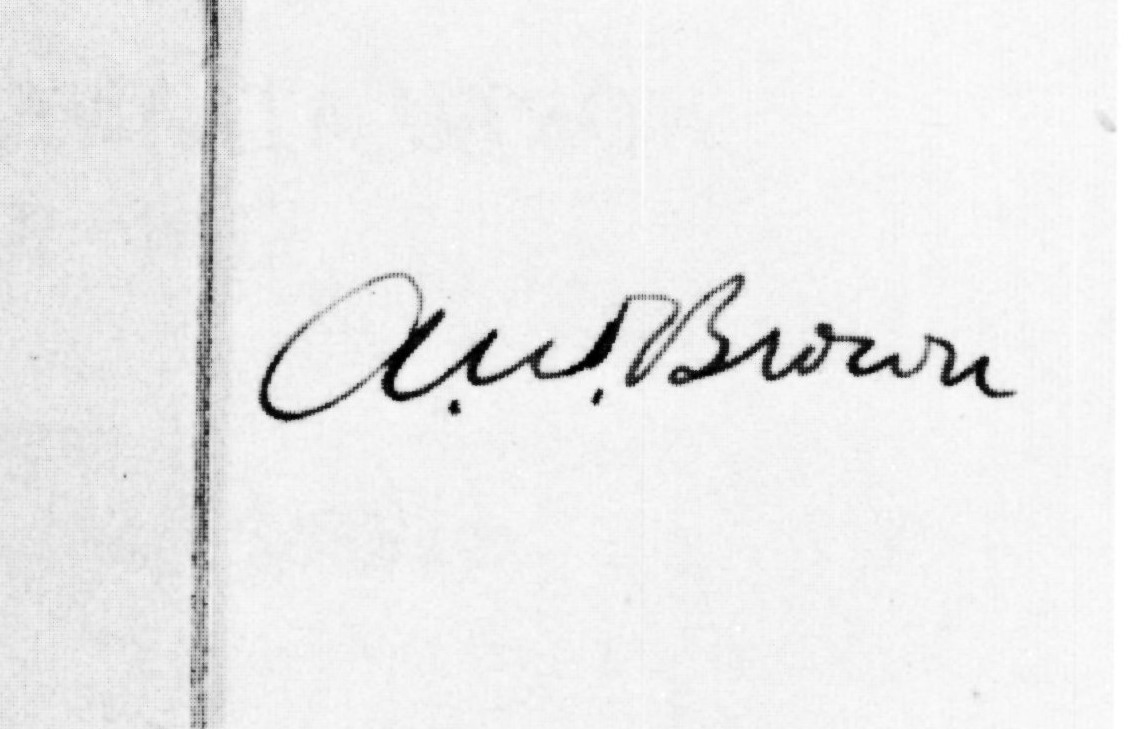 A. W. Brown